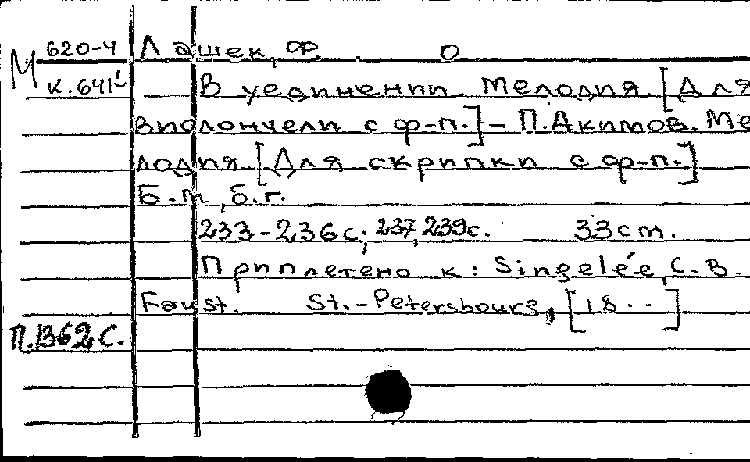 М 620-4 Лашек, Ф. О
к. 641 В уединении. Мелодия [Для
виолончели с ф-п.] - П. Акимов. Ме
лодия. [Для скрипки с ф-п.]
Б.м., б.г.
233-236 с.; 237, 239 с. 33 cm.
Приплетено к: Singelée, C. B.
Faust. St.-Petersbourg, [18..]
П. 1362 С.